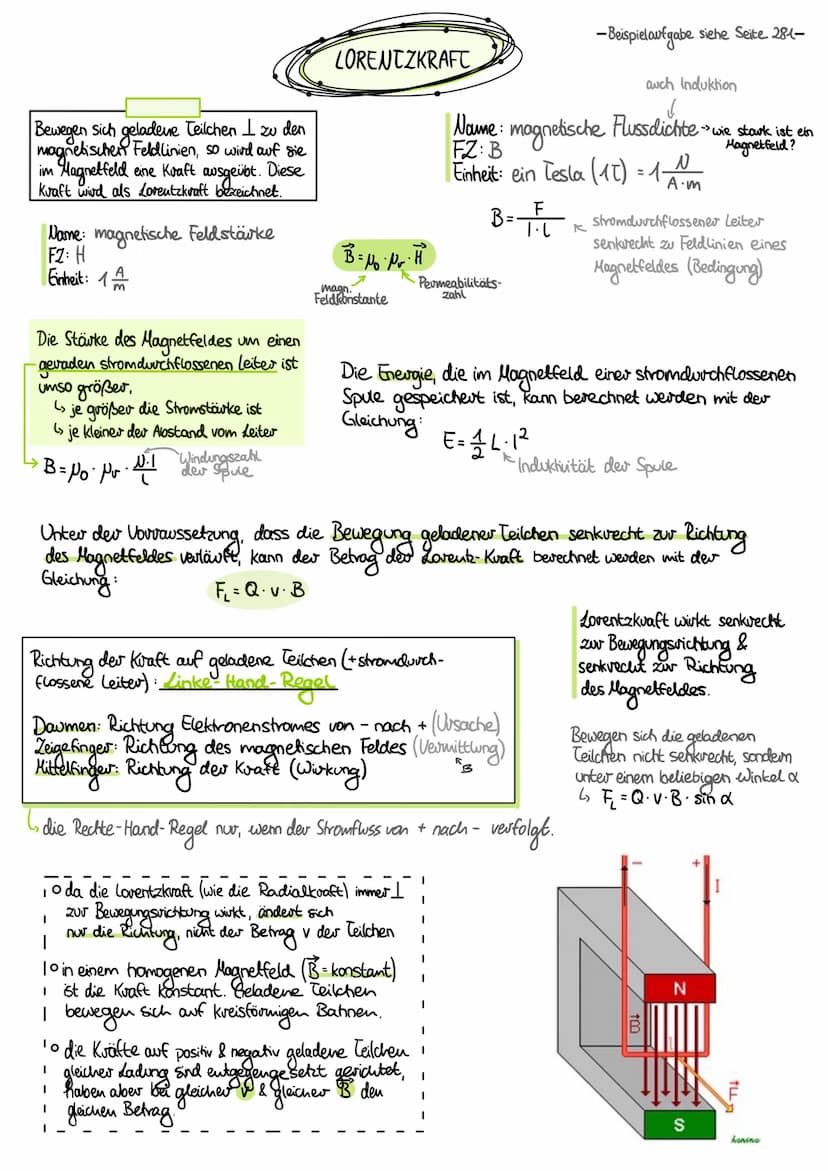 LORENTZKRAFT
-Beispielaufgabe siehe Seite 281-
Bewegen sich geladene Teilchen ⊥ zu den
magnetischen Feldlinien, so wird auf sie
im Magnetfeld eine Kraft ausgeübt. Diese
Kraft wird als Lorentzkraft bezeichnet.
auch Induktion
Name: magnetische Flussdichte → wie stark ist ein
Magnetfeld?
FZ: B
Einheit: ein Tesla (1T) = 1 N/A·m
B = F/I·L
stromdurchflossener Leiter
senkrecht zu Feldlinien eines
Magnetfeldes (Bedingung)
Name: magnetische Feldstärke
FZ: H
Einheit: 1 A/m
B = μ₀ · μᵣ · H
magn.
Feldkonstante
Permeabilitäts-
zahl
Die Stärke des Magnetfeldes um einen
geraden stromdurchflossenen Leiter ist
umso größer,
↳ je größer die Stromstärke ist
↳ je kleiner der Abstand vom Leiter
B = μ₀ · μᵣ · N·I/L
Windungszahl
der Spule
Die Energie, die im Magnetfeld einer stromdurchflossenen
Spule gespeichert ist, kann berechnet werden mit der
Gleichung:
E = 1/2 L · I²
Induktivität der Spule
Unter der Vorraussetzung, dass die Bewegung geladener Teilchen senkrecht zur Richtung
des Magnetfeldes verläuft, kann der Betrag der Lorentz-Kraft berechnet werden mit der
Gleichung:
F_L = Q · v · B
Richtung der Kraft auf geladene Teilchen (+stromdurch-
flossene Leiter): Linke-Hand-Regel
Daumen: Richtung Elektronenstromes von - nach + (Ursache)
Zeigefinger: Richtung des magnetischen Feldes (Vermittlung)
B
Mittelfinger: Richtung der Kraft (Wirkung)
↳ die Rechte-Hand-Regel nur, wenn der Stromfluss von + nach - verfolgt.
Lorentzkraft wirkt senkrecht
zur Bewegungsrichtung &
senkrecht zur Richtung
des Magnetfeldes.
Bewegen sich die geladenen
Teilchen nicht senkrecht, sondern
unter einem beliebigen Winkel α
↳ F_L = Q · v · B · sin α
o da die Lorentzkraft (wie die Radialkraft) immer ⊥
zur Bewegungsrichtung wirkt, ändert sich
nur die Richtung, nicht der Betrag v der Teilchen
o in einem homogenen Magnetfeld (B = konstant)
ist die Kraft konstant. Geladene Teilchen
bewegen sich auf kreisförmigen Bahnen.
o die Kräfte auf positiv & negativ geladene Teilchen
gleicher Ladung sind entgegengesetzt gerichtet,
haben aber bei gleicher v & gleicher B den
gleichen Betrag.
- +
I
N
B
F
S